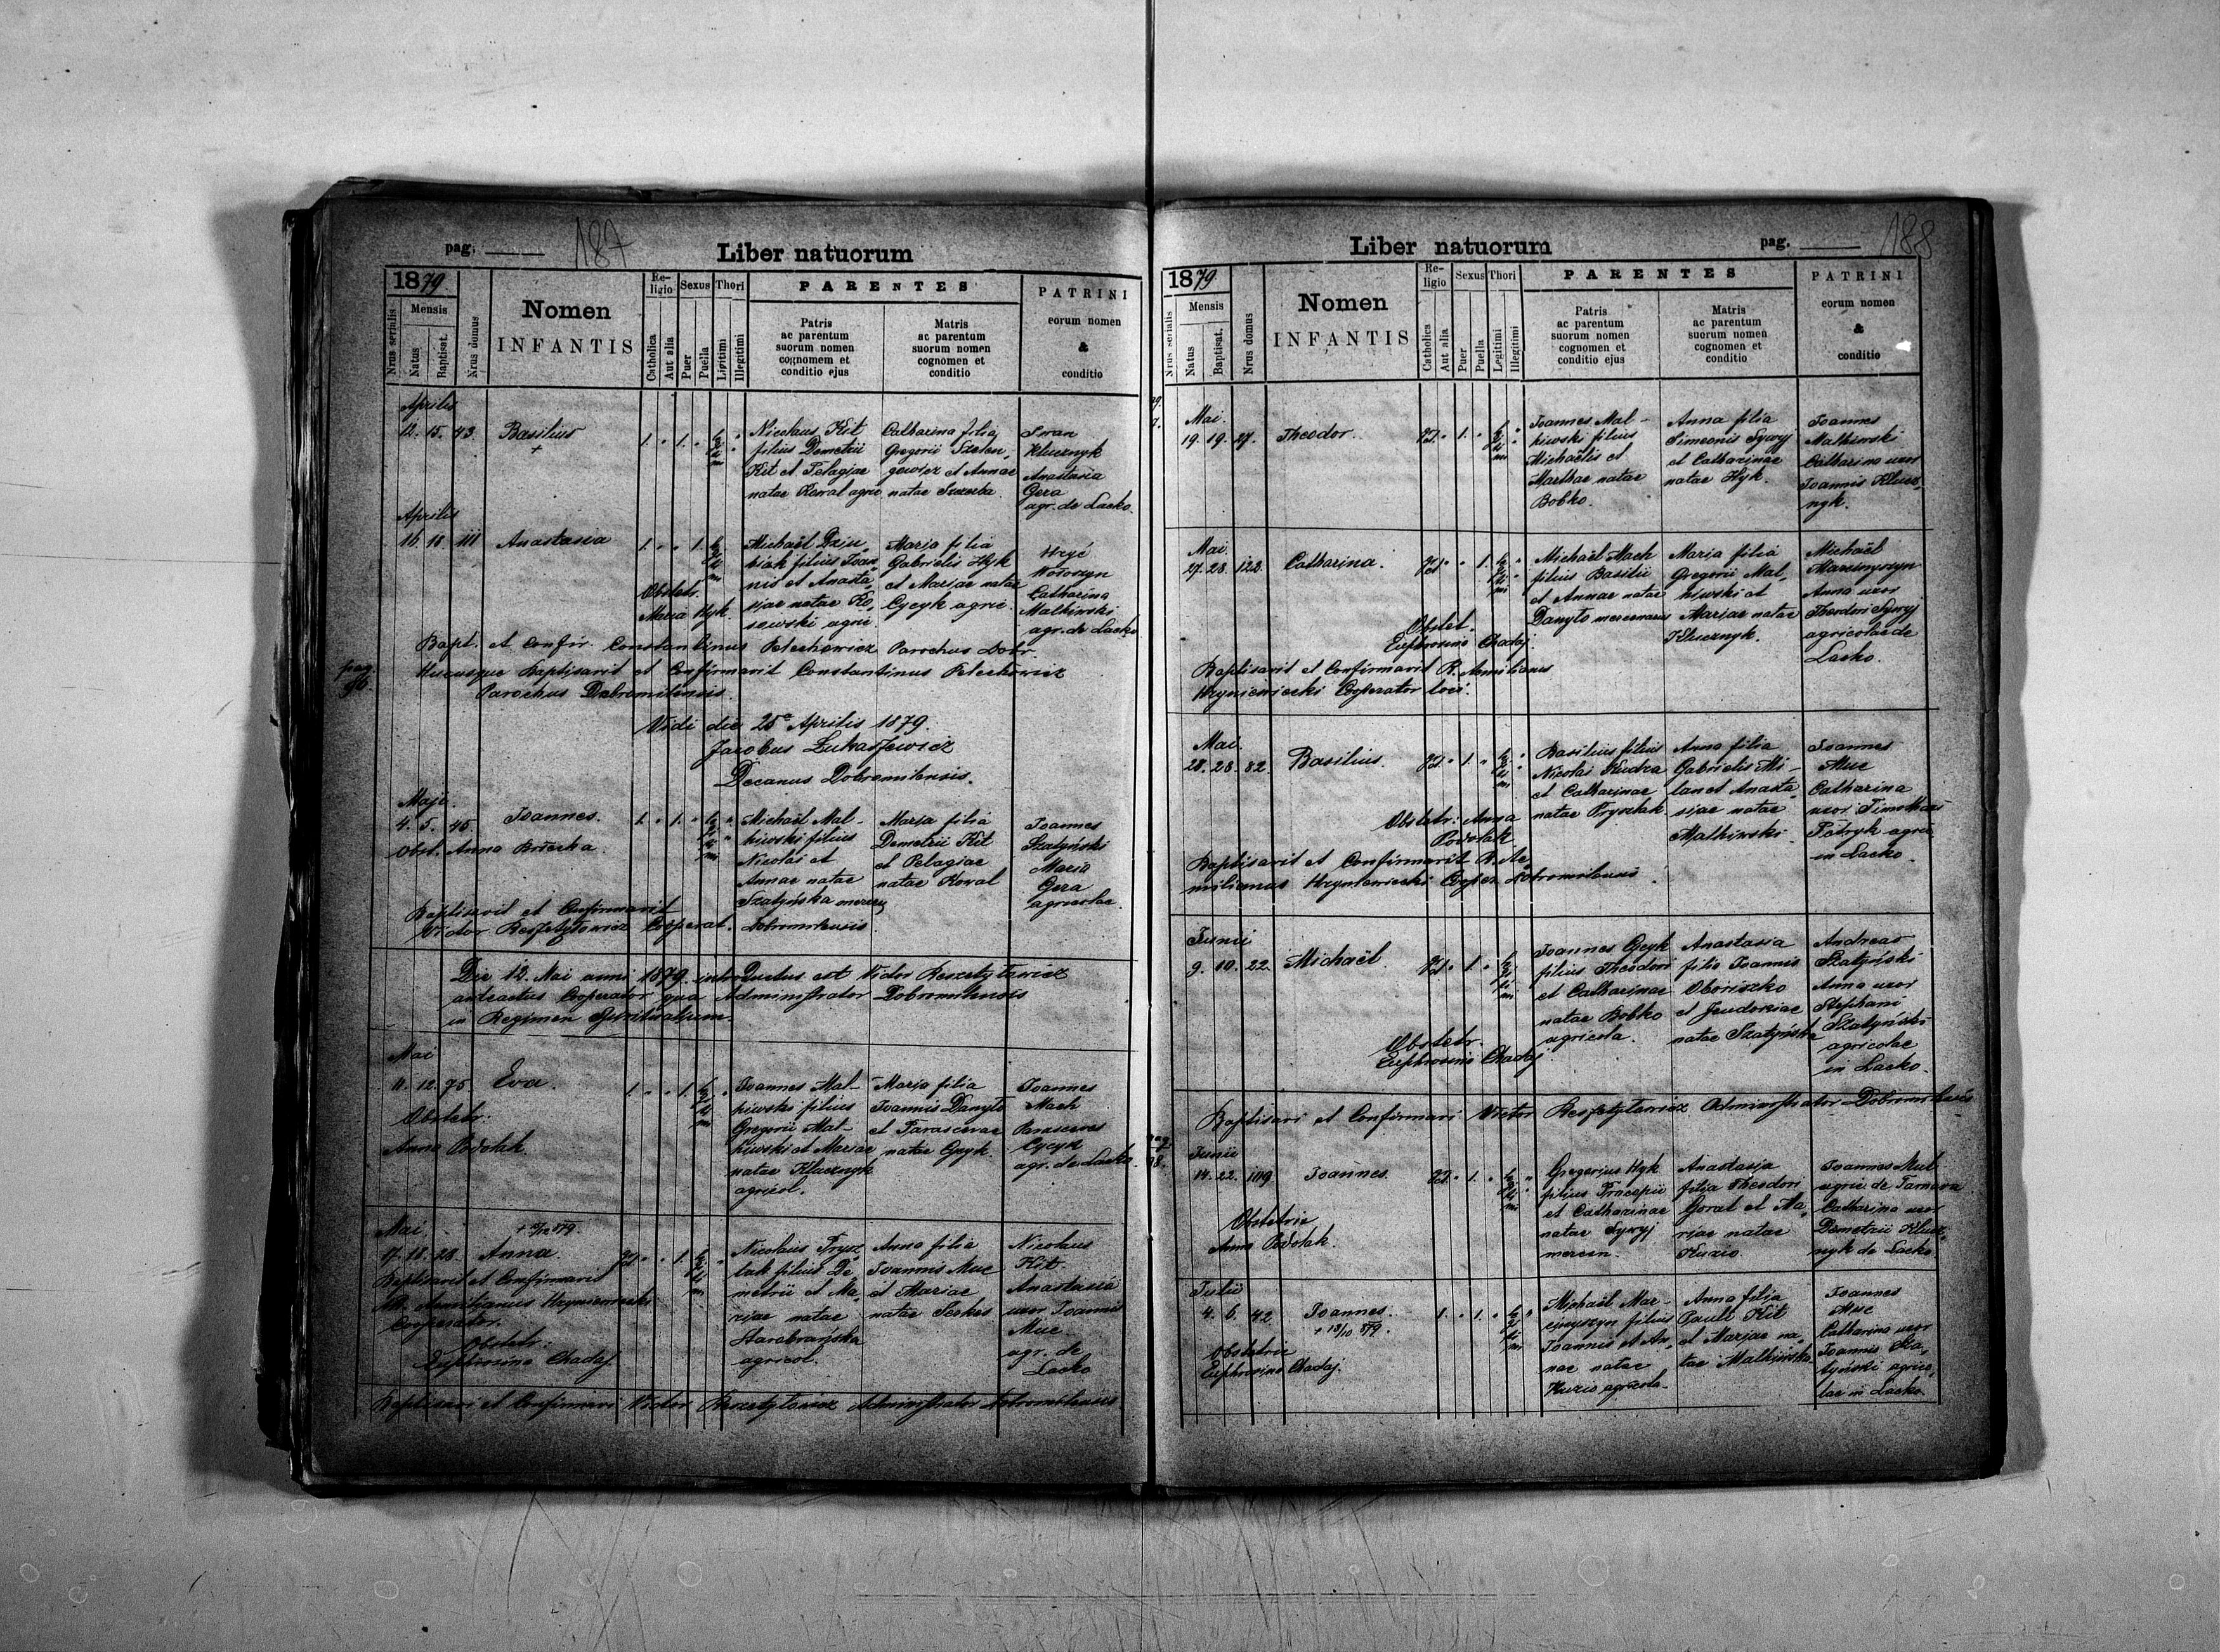 pag. 187
Liber natuorum
1879
Nrus serialis
Mensis
Natus
Baptisat.
Nrus domus
Nomen
INFANTIS
Religio
Catholica
Aut alia
Sexus
Puer
Puella
Thori
Illegitimi
PARENTES
Patris
ac parentum
suorum nomen
cognomem et
conditio ejus
Matris
ac parentum
suorum nomen
cognomen et
conditio
PATRINI
eorum nomen
&
conditio
Aprilis
12. 15. 43. Basilius
Nicolaus Kit
filius Demetrii
Kit et Pelagiae
natae Kowal agric
Catharina filia
Gregorii
et Annae
natae
Iwan
Klucznyk
Anastasia
Gera
agr. de Lacko.
Aprilis
16. 18. 111 Anastasia
Michaël
filius Joan„
nis et Anasta„
siae natae Ko„
sowski agric
Maria filia
Gabrielis Hyk
et Mariae natae
Cycyk agric.
Hryć
Wołoszyn
Catharina
Malhiwski
agr. de Lacko
Obstetr.
Maria Hyk.
Bapt. et Confir. Constantinus Petechowicz Parochus Dobr.
Hucusque Baptisavit et Confirmavit Constantinus Petechowicz
Parochus Dobromilensis.
pag.
96.
Vidi die 25ª Aprilis 1879.
Jacobus Lukaszewicz
Decanus Dobromilensis.
Maji.
4. 5. 45 Joannes.
Obst. Anna
Michaël Mal-
hiwski filius
Nicolai et
Annae natae
Szatyńska
Maria filia
Demetrii Kit
et Pelagiae
natae Kowal
Joannes
Szatyński
Maria
Gera
agricolae.
Baptisavit et Confirmavit
Victor Reszetyłowicz Cooperat. Dobromilensis.
Die 12. Mai anni 1879. introductus est Victor Reszetyłowicz
anteactus Cooperator qua Administrator Dobromilensis
in Regimen Spiritualium.
Mai
11. 12. 75 Eva.
Obstetr:
Anna Podolak.
Joannes Mal-
hiwski filius
Gregorii Mal-
hiwski et Mariae
natae Klucznyk
agricol.
Maria filia
Joannis Danyło
et Parascevae
natae Cycyk.
Joannes
Mach
Parasceva
Cycyk
agr. de Lacko.
Mai
17. 18. 28. Anna.
Baptisavit et Confirmavit
Cooperator.
Obstetr:
Euphrosina Chadaj.
Nicolaus Prysz„
lak filius De„
metrii et Ma„
riae natae
Starabrańska
agricol.
Anna filia
Joannis Muc
et Mariae
natae
Nicolaus
Kit.
Anastasia
uxor Joannis
Muc
agr. de
Lacko
Baptisavi et Confirmavi Victor Reszetyłowicz Administrator Dobromilensis.
Liber natuorum
pag. 188
1879
Nrus serialis
Mensis
Natus
Baptisat.
Nrus domus
Nomen
INFANTIS
Religio
Catholica
Aut alia
Sexus
Puer
Puella
Thori
Legitimi
Illegitimi
PARENTES
Patris
ac parentum
suorum nomen
cognomen et
conditio ejus
Matris
ac parentum
suorum nomen
cognomen et
conditio
PATRINI
eorum nomen
&
conditio
Mai.
19. 19. 27. Theodor.
Joannes Mal-
hiwski filius
Michaëlis et
Marthae natae
Bobko.
Anna filia
Simeonis Sywyj
et Catharinae
natae Hyk.
Joannes
Malhiwski
Catharina uxor
Joannis Klucz„
nyk.
Mai.
27. 28. 123. Catharina.
Michaël Mach
filius Basilii
et Annae natae
Danyło mercenarius
Maria filia
Gregorii Mal„
hiwski et
Mariae natae
Klucznyk.
Michaël
Anna uxor
Theodori Sywyj
agricolae de
Lacko.
Obstet.
Euphrosina Chadaj
Baptisavit et Confirmavit R. Aemilianus
Hryniewiecki Cooperator loci.
Mai.
28. 28. 82. Basilius.
Basilius filius
Nicolai Kudra
et Catharinae
natae Pryszlak
Anna filia
Gabrielis Mi-
lan et Anasta„
siae natae
Malhiwski.
Joannes
Muc
Catharina
uxor Timothei
Patryk agric
in Lacko.
Obstetr. Anna
Podolak.
Baptisavit et Confirmavit R. Ae„
milianus Hryniewiecki Cooper. Dobromilensis.
Junii
9. 10. 22. Michaël
Joannes Cycyk
filius Theodori
et Catharinae
natae Bobko
agricola.
Anastasia
filia Joannis
Oboriszko
et Feudoriae
natae Szatyńska
Andreas
Szatyński
Anna uxor
Stephani
Szatyński
agricolae
in Lacko.
Obstetr.
Euphrosina Chadaj
Baptisavi et Confirmavi Victor Reszetyłowicz Administrator Dobromilensis
pag.
98.
Junii
14. 22. 109. Joannes.
Obstetrix
Anna Podolak.
Gregorius Hyk
filius Procopii
et Catharinae
natae Sywyj
mercen.
Anastasia
filia Theodori
Goral et Ma„
riae natae
Kuzio
Joannes Mul
agric. de Tarnawa
Catharina uxor
Demetrii Klucz„
nyk de Lacko.
Julii
4. 6. 42. Joannes.
+ 13/10 879.
Obstetrix
Euphrosina Chadaj.
Michaël Mar-
cinyszyn filius
Joannis et An„
nae natae
Kuzio agricola-
Anna filia
Pauli Kit
et Mariae na„
tae Malhiwska.
Joannes
Muc
Catharina uxor
Joannis Sza„
tyński agrico„
lae in Lacko.